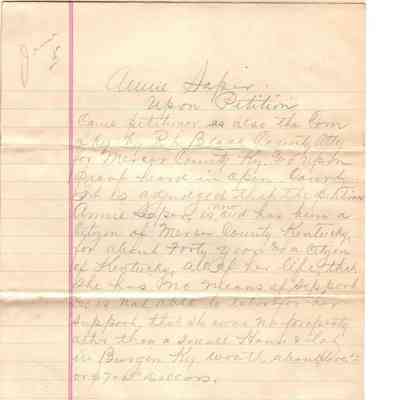 June
5
Annie Sapir.
Upon Petition
Came petitioner as also the Com
of Ky by R.L. Black County Atty
for Mercer County Ky. & Upon
proof heard in open Court
it is adjudged that the petitioner
Annie Saper is now and has been a
Citizen of Mercer County Kentucky
for about Forty years & a Citizen
of Kentucky all of her life, that
She has no means of support
& is not able to labor for her
support, that she owns no property
other than a small House & lot
in Burgin Ky. worth about
or $ dollars.